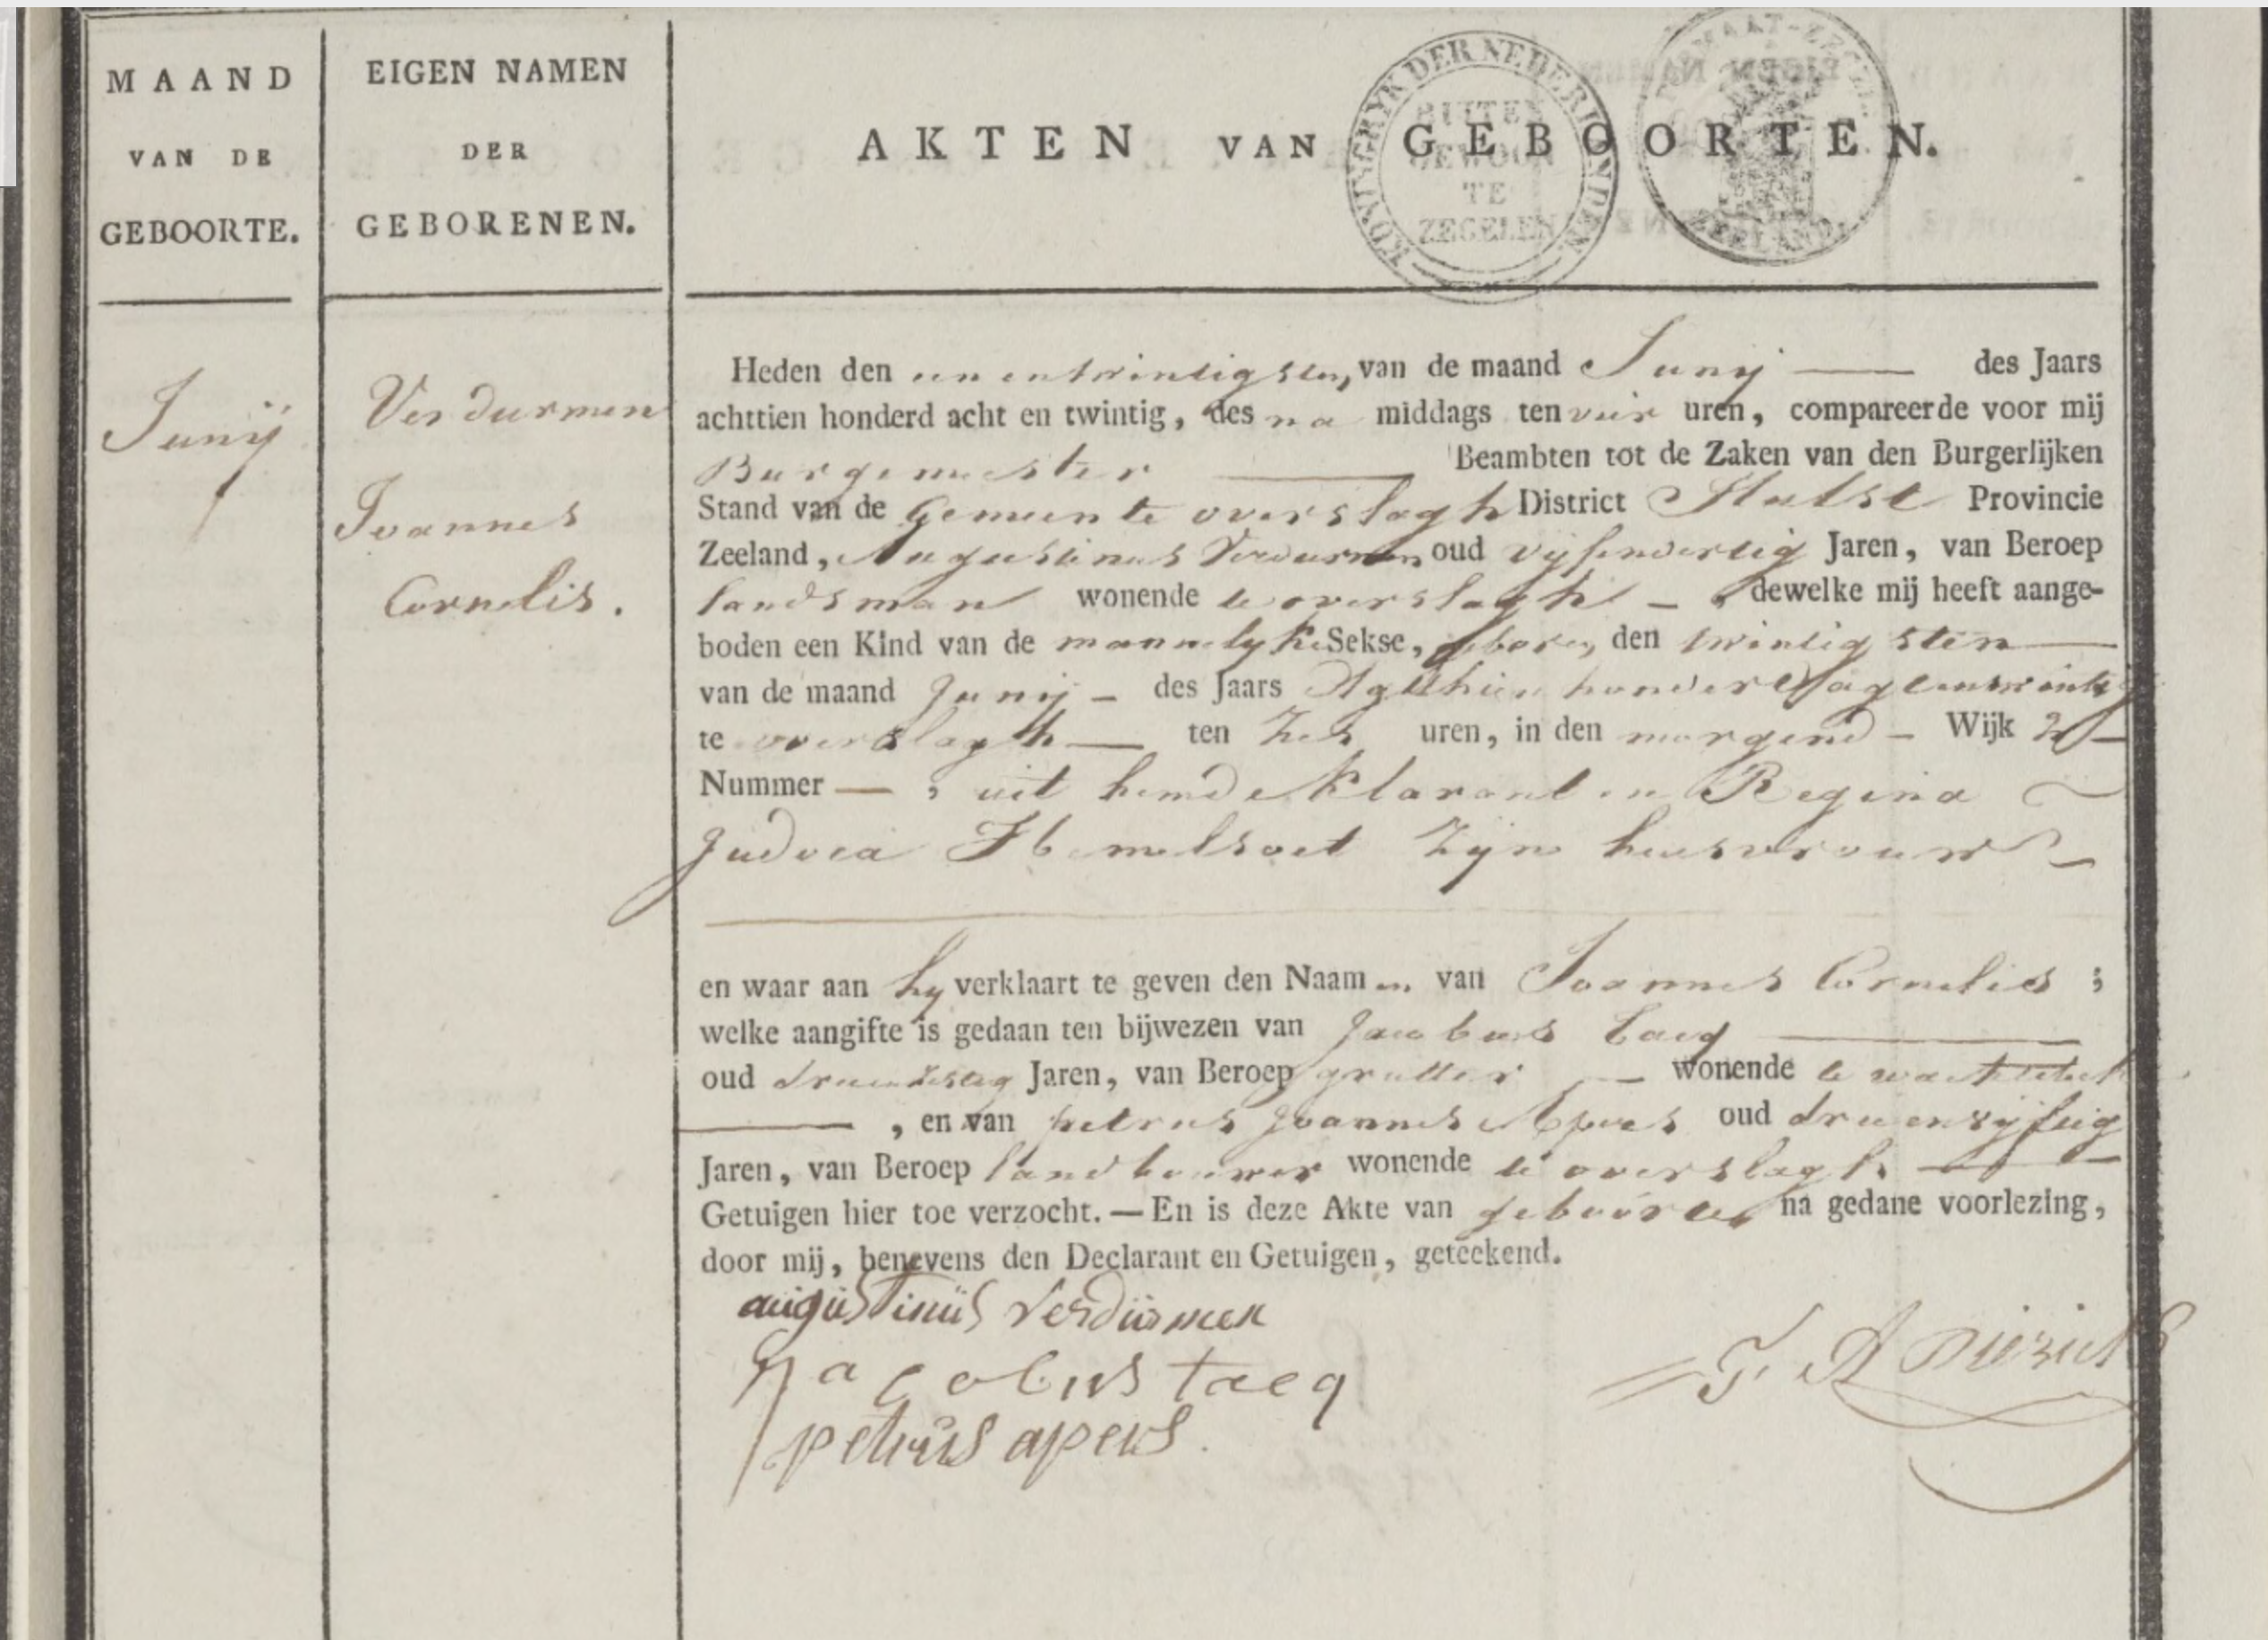 MAAND
VAN DE
GEBOORTE.
EIGEN NAMEN
DER
GEBORENEN.
AKTEN VAN GEBOORTEN.
KONINGRYK DER NEDERLANDEN
BUITEN
GEWOON
TE
ZEGELEN
Junij
Verdurmen
Joannes
Cornelis.
Heden den een en twintigsten, van de maand Junij — des Jaars
achttien honderd acht en twintig, des na middags ten vier uren, compareerde voor mij
Burgemeester — Beambten tot de Zaken van den Burgerlijken
Stand van de Gemeente overslagh District Hulst Provincie
Zeeland, Augustinus Verdurmen oud vijfendertig Jaren, van Beroep
landsman wonende te overslagh — , dewelke mij heeft aange-
boden een Kind van de mannelyke Sekse, geboren, den twintigsten —
van de maand Junij — des Jaars Agtthien honderd agtentwintig
te overslagh — ten zes uren, in den morgend — Wijk
Nummer — , uit hem deklarant en Regina
Judoca Hemelsoet zijne huisvrouw —
en waar aan hy verklaart te geven den Naamen van Joannes Cornelies ;
welke aangifte is gedaan ten bijwezen van Jacobus Taeg —
oud drieenzestig Jaren, van Beroep grutter — wonende te wachtebeke
— , en van petrus Joannes Apers oud drieenvijftig
Jaren, van Beroep landbouwer wonende te overslagh —
Getuigen hier toe verzocht. — En is deze Akte van geboorte, na gedane voorlezing,
door mij, benevens den Declarant en Getuigen, geteekend.
augustinus verdurmen
Jacobus taeq
petrus apers.